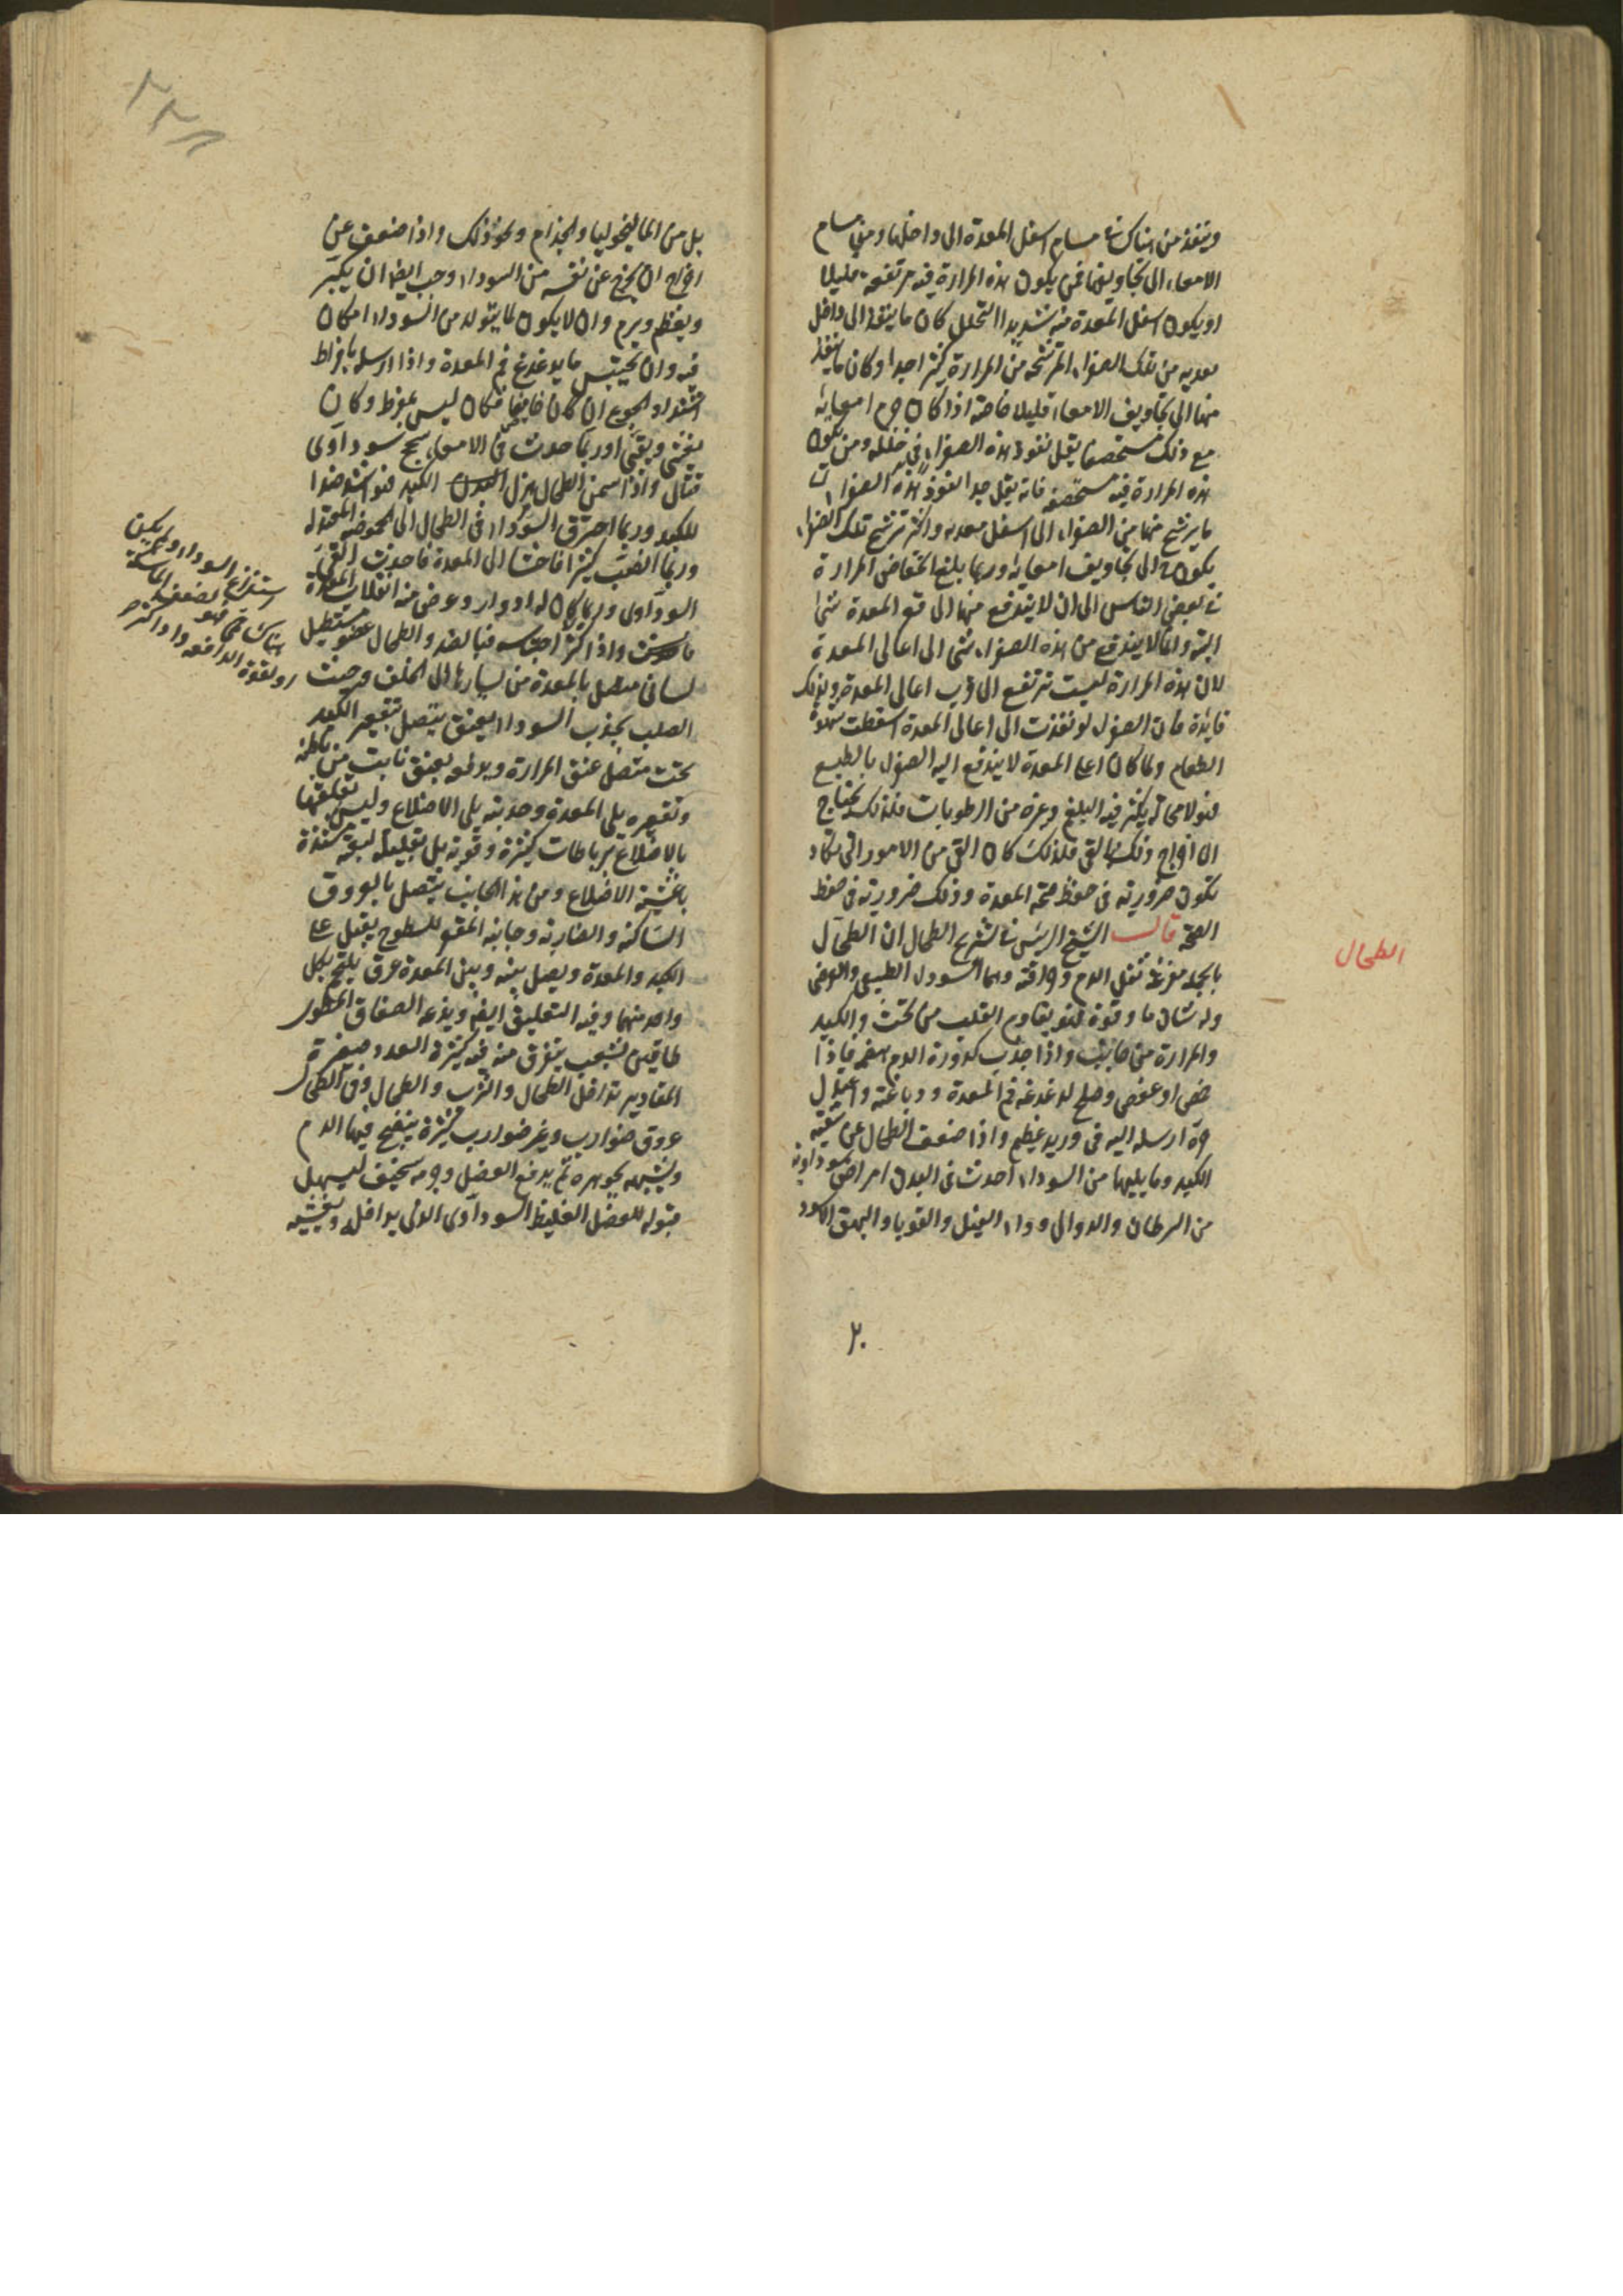 وينفذ من هناك في مسام اسفل المعدة الى داخلها ومن مسام
الامعاء الى تجاويفها فمن يكون هذه المرارة فيه مرتفعة قليلا
او يكون اسفل المعدة منه شديد التخلل كان ما ينفذ الى داخل
معدته من تلك الصفراء المترشحة من المرارة كثيرا جدا وكان ما ينفذ
منها الى تجاويف الامعاء قليلا خاصة اذا كان جرم امعائه
مع ذلك مستحصفا يقل نفوذ هذه الصفراء في خلله ومن يكون
هذه المرارة فيه فانه يقل جدا نفوذ هذه الصفراء
ما يرشح منها من الصفراء الى اسفل معدته واكثر ترشح تلك الصفراء
يكون الى تجاويف امعائه وربما بلغ انخفاض المرارة
في بعض الناس الى ان لا يندفع منها الى قعر المعدة شئ
البتة وانما لا يندفع من هذه الصفراء شئ الى اعالى المعدة
لان هذه المرارة ليست ترتفع الى قرب اعالى المعدة ولذلك
فايدة فان الصفراء لو نفذت الى اعالى المعدة اسقطت شهوة
الطعام ولما كان اعلى المعدة لا يندفع اليه الصفراء بالطبع
فهو لا محالة يكثر فيه البلغم وغيره من الرطوبات فلذلك يحتاج
الى اخراج ذلك بالقئ فلذلك كان القئ من الامور التى تكاد
تكون ضرورية فى حفظ صحة المعدة وذلك ضرورية فى حفظ
الصحة قال الشيخ الرئيس في تشريح الطحال ان الطحال
بالجملة مفرغة ثفل الدم وحراقته وهما السوداء الطبيعى والعرضى
وله شان ما وقوة فهو يقاوم القلب من تحت والكبد
والمرارة من جانب واذا جذب كدورة الدم هضمه فاذا
حمض او عفص وصلح لدغدغة فم المعدة ودباغته واعتدل
حره ارسله اليه فى وريد عظيم واذا ضعف الطحال عن تنقية
الكبد وما يليها من السوداء احدث فى البدن امراض سوداوية
من السرطان والدوالى وداء الفيل والقوبا والبهق الاسود
الطحال
٢٠
بل من الماليخوليا والجذام ونحو ذلك واذا ضعف عن
اخراج ان يخرج عن نفسه من السوداء وجب ايضا ان يكبر
ويعظم ويرم وان لا يكون لما يتولد من السوداء مكان
فيه وان يحتبس ما يدغدغ فم المعدة واذا ارسله بافراط
اشتداد الجوع ان كان حامضا فكان ليس بمفرط وكان
يغثى ويقئ وربما حدث فى الامعاء سحج سوداوى
قتال واذا سمن الطحال هزل البدن الكبد فهو اشد ضدا
للكبد وربما احترق السوداء فى الطحال الى الحموضة المحتولة
وربما انصب كثيرا فاحشا الى المعدة فاحدث القئ
السوداوى وربما كان له ادوار وعرض منه انقلاب المعدة
واذا كثر احتباسه فبالضد والطحال عضو مستطيل
لسانى متصل بالمعدة من يسارها الى الخلف وحيث
الصلب يجذب السوداء بعنق يتصل بتقعير الكبد
تحت متصل عنق المرارة ويدفعه بعنق نابت من باطنه
وتقعيره يلى المعدة وحدبته يلى الاضلاع وليس تعلقها
بالاضلاع برباطات كثيرة وقوية بل بقليلة ليفية منفذة
باغشية الاضلاع ومن هذا الجانب يتصل بالعروق
الساكنة والضاربة وجانبه المقعر المسطوح يقبل على
الكبد والمعدة ويصل بينه وبين المعدة عرق يلتحم بكل
واحد منهما وفيه التعليق ايضا ويدعمه الصفاق المطوى
طاقين بشعب يتفرق منه فيه كثيرة العدد صغيرة
المقادير تداخل الطحال والثرب والطحال وفى الطحال
عروق ضوارب وغير ضوارب كثيرة ينضج فيها الدم
ويشبهه بجوهره ثم يدفع الفضل وجرمه سخيف ليسهل
قبوله للفضل الغليظ السوداوى الذى يداخله ويغشيه
استفراغ السوداء